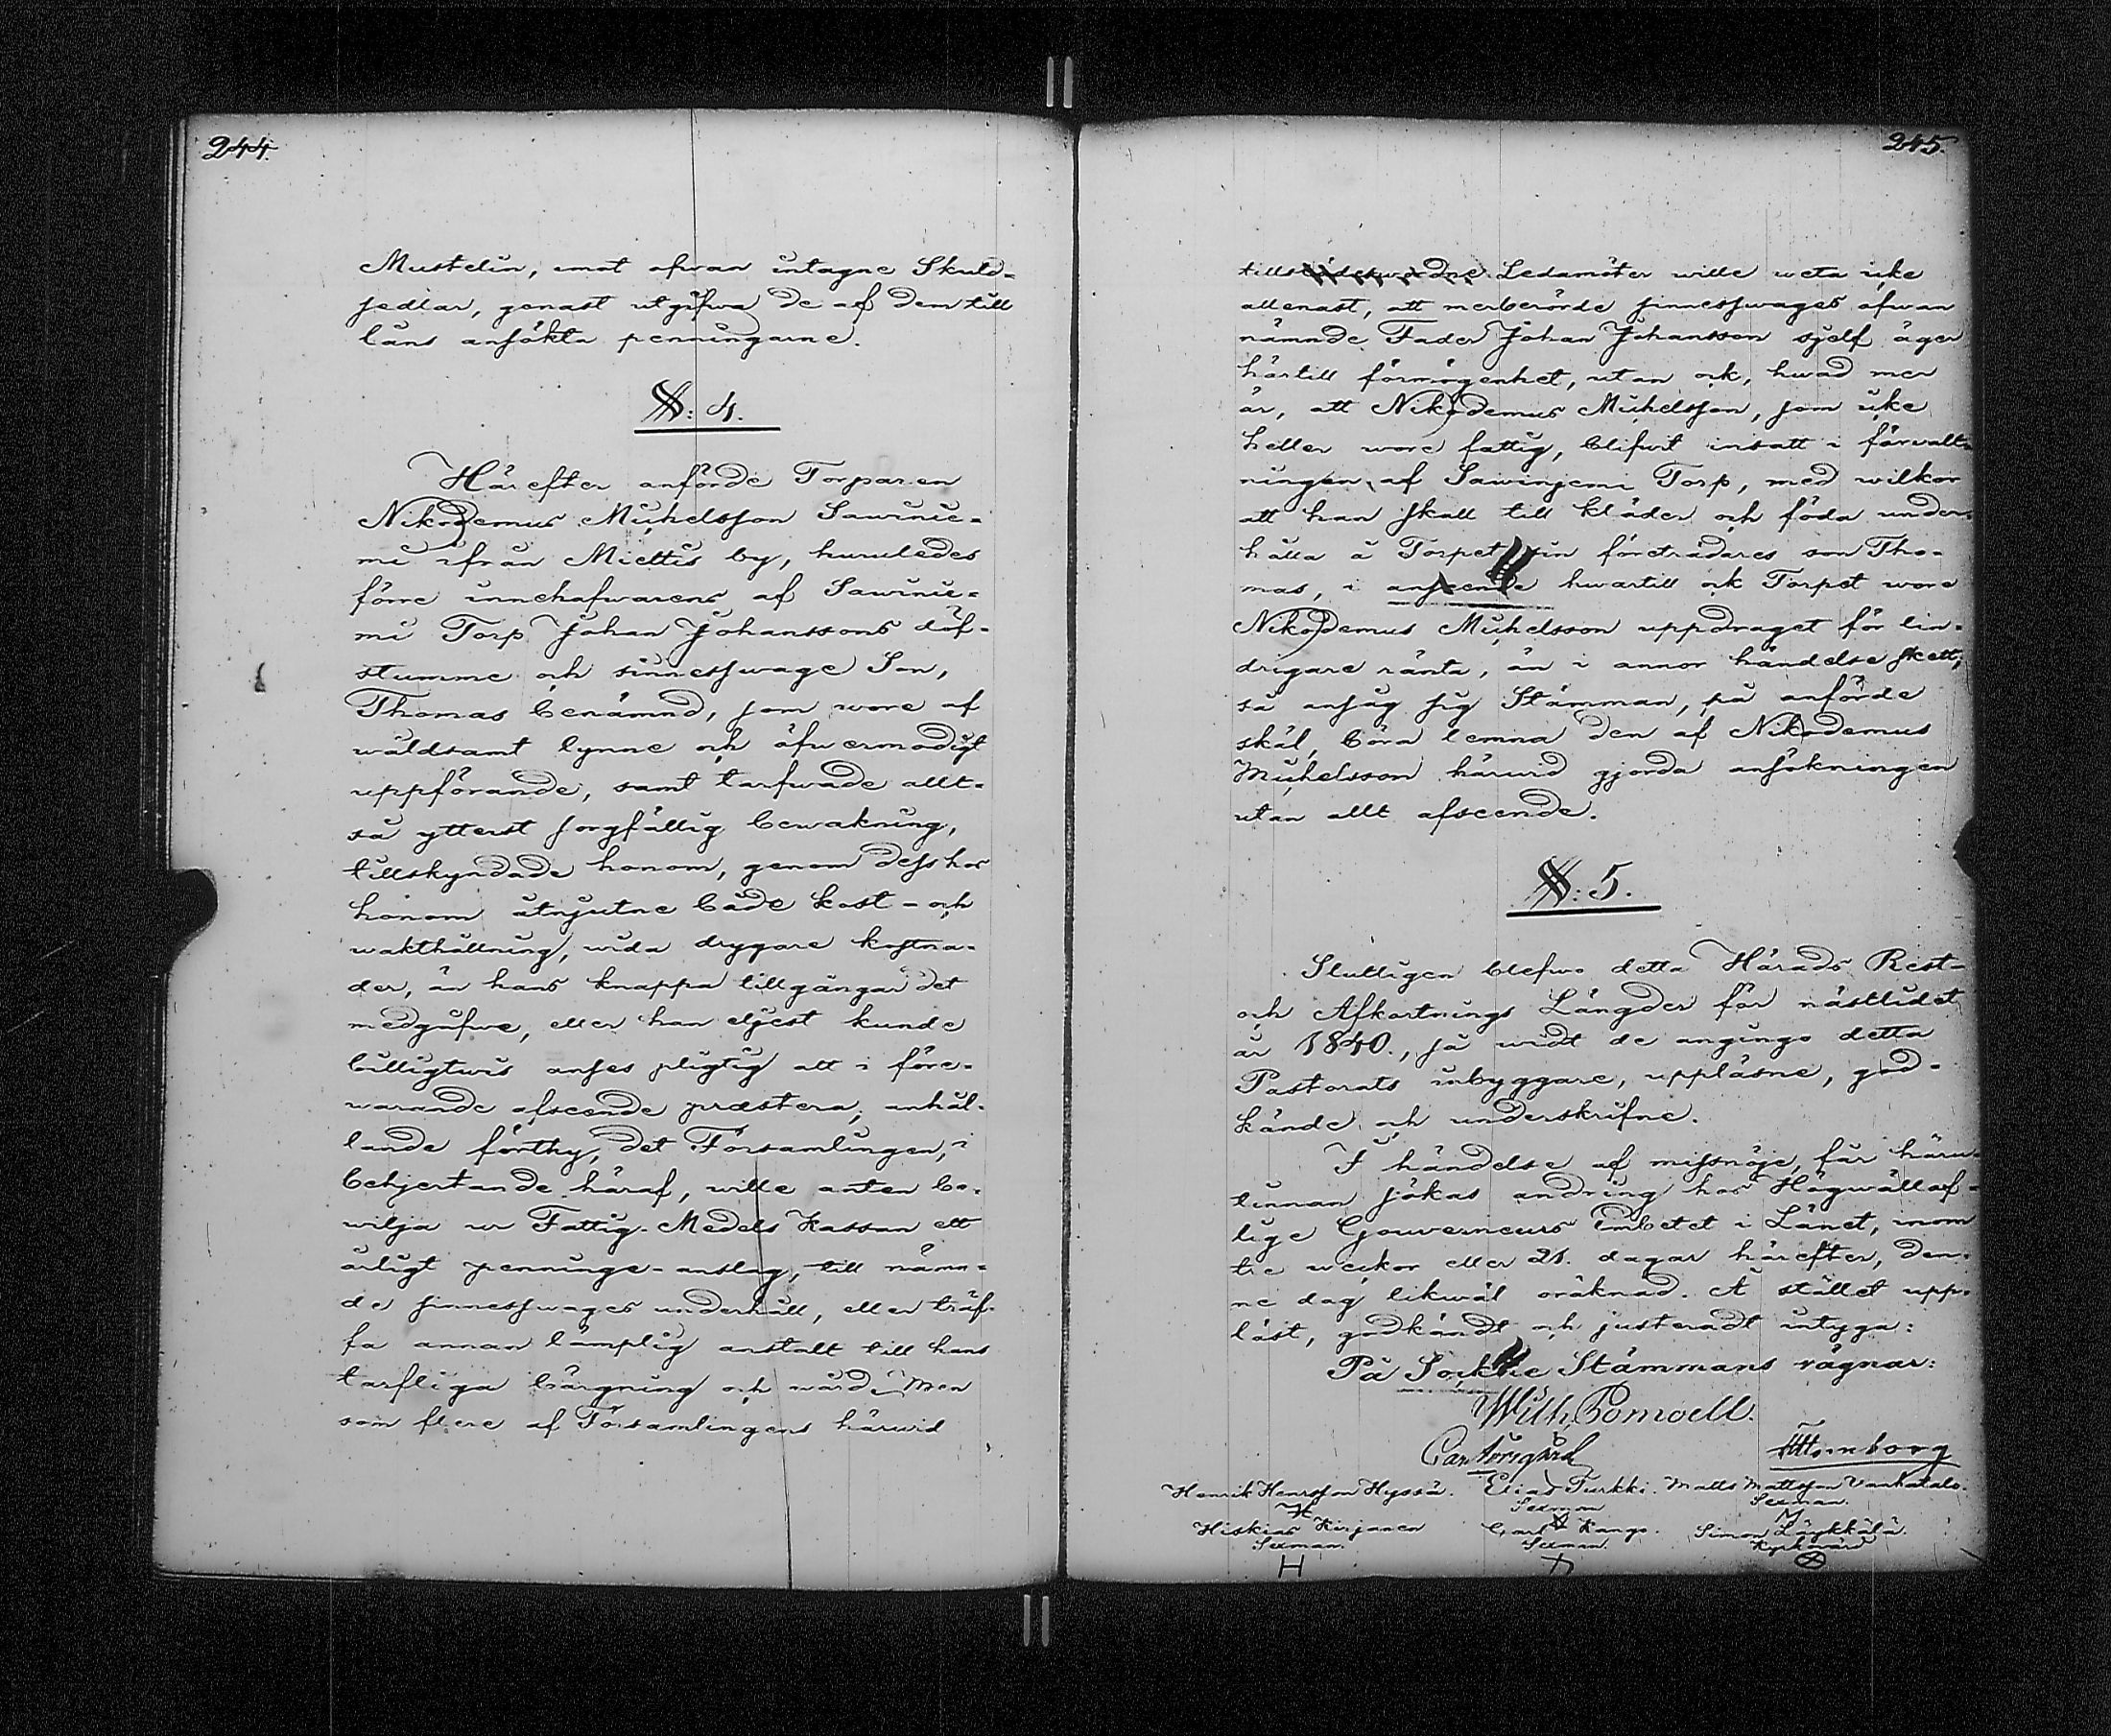 244.
Mustelin, emot ofvan intagne Skuld-
sedlar, genast utgifwa de af dem till
låns ansökta penningarne.
§: 4.
Härefter anförde Torparen
Nikodemus Michelsson Sawinie-
mi ifrån Miettis by, huruledes
förre innehafwarens af Sawinie-
mi Torp Johan Johanssons döf-
stumme och sinnesswage Son,
Thomas benämnd, som wore af
wåldsamt lynne och öfwermodigt
uppförande, samt tarfwade allt-
så ytterst sorgfällig bewakning,
tillskyndade honom, genom dess hos
honom åtnjutne både kost- och
wakthållning, wida drygare kostna-
der, än hans knappa tillgångar det
medgifwe, eller han eljest kunde
billigtwis anses pligtig att i före-
warande afseende præstera, anhål-
lande förthy, det Församlingen, i
behjertande häraf, wille anten be-
wilja ur Fattig-Medels Kassan ett
årligt pennings-anslag, till nämn-
de sinnesswages underhåll, eller träf-
fa annan lämplig anstalt till hans
tarfliga bärgning och wård; Men
som flere af Församlingens härwid
245.
tillstädeswardne Ledamöter wille weta icke
allenast, att merberörde sinnesswages ofwan
nämnde Fader Johan Johansson sjelf äger
härtill förmögenhet, utan ock, hwad mer
är, att Nikodemus Michelsson, som icke
heller wore fattig, blifwit insatt i förvalt-
ningen af Sawinjemi Torp, med wilkor
att han skall till kläder och föda under-
hålla å Torpet sin företrädares son Tho-
mas, i anseende hwartill ock Torpet wore
Nikodemus Michelsson uppdraget för lin-
drigare ränta, än i annor händelse skett;
så ansåg sig Stämman, på anförde
skäl, böra lemna den af Nikodemus
Michelsson härwid gjorda ansökningen
utan allt afseende.
§: 5.
Slutligen blefwo detta Härads Rest-
och Afkortnings Längder för nästlidet
år 1840., så widt de angingo detta
Pastorats inbyggare, uppläsne, god-
kände och underskrifne.
I händelse af missnöje, får häru-
tinnan sökas ändring hos Högwällof-
lige Gouverneurs Embetet i Länet, inom
tre weckor eller 21. dagar härefter, den-
ne dag likwäl oräknad. Å stället upp-
läst, godkändt och justeradt intyga:
På Sockne Stämmans wägnar:
Wilh. Pomoell.
Henrik Henrsson Hyssä. Elias Turkki. Matts Mattsson Vankatalo.
Sexman Sexman.
Hiskias Kirjanen Carl Kango. Simon Läykkälä.
Sexman. Sexman. Kyrkowärd
H